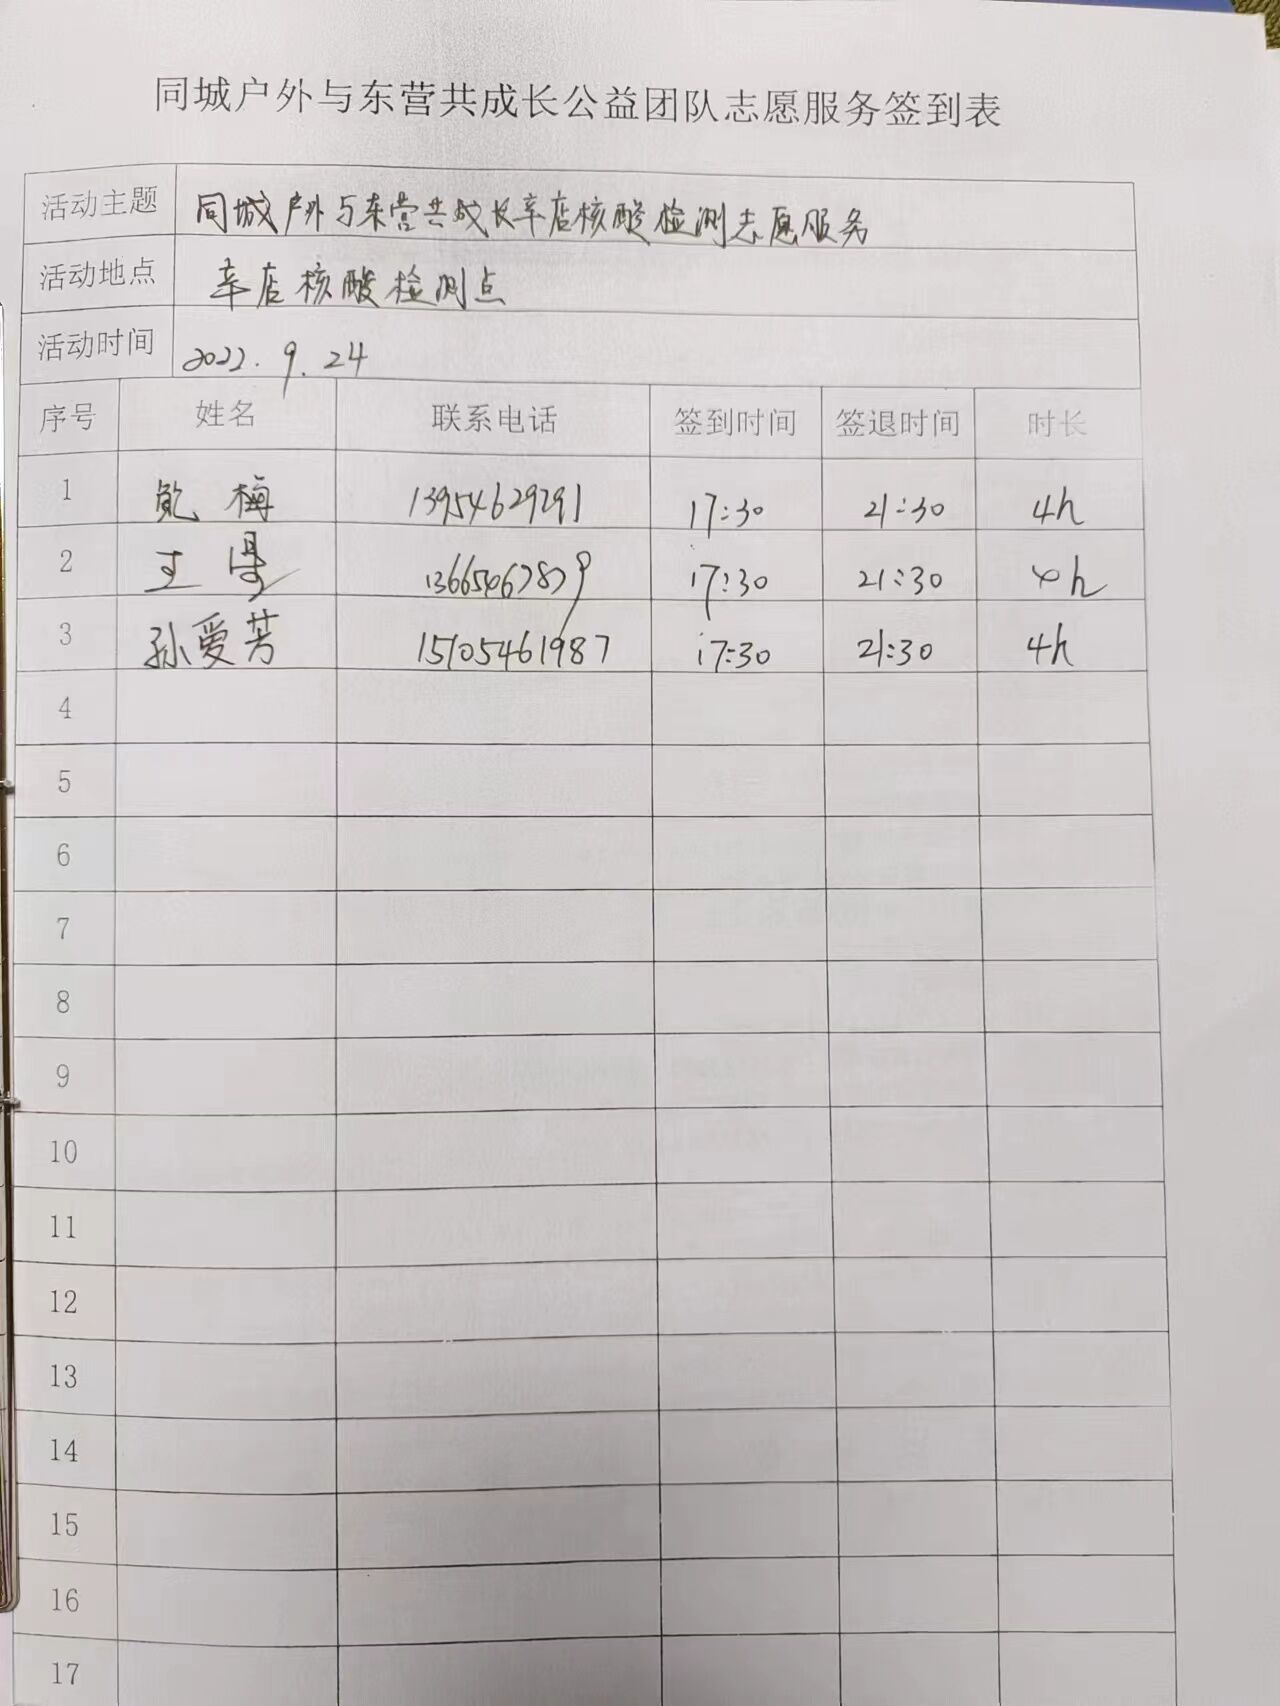 同城户外与东营共成长公益团队志愿服务签到表
活动主题 同城户外与东营共成长辛店核酸检测志愿服务
活动地点 辛店核酸检测点
活动时间 2022.9.24
序号 姓名 联系电话 签到时间 签退时间 时长
1 梅 13954629291 17:30 21:30 4h
2 王 17:30 21:30 4h
3 孙爱芳 15105461987 17:30 21:30 4h
4
5
6
7
8
9
10
11
12
13
14
15
16
17